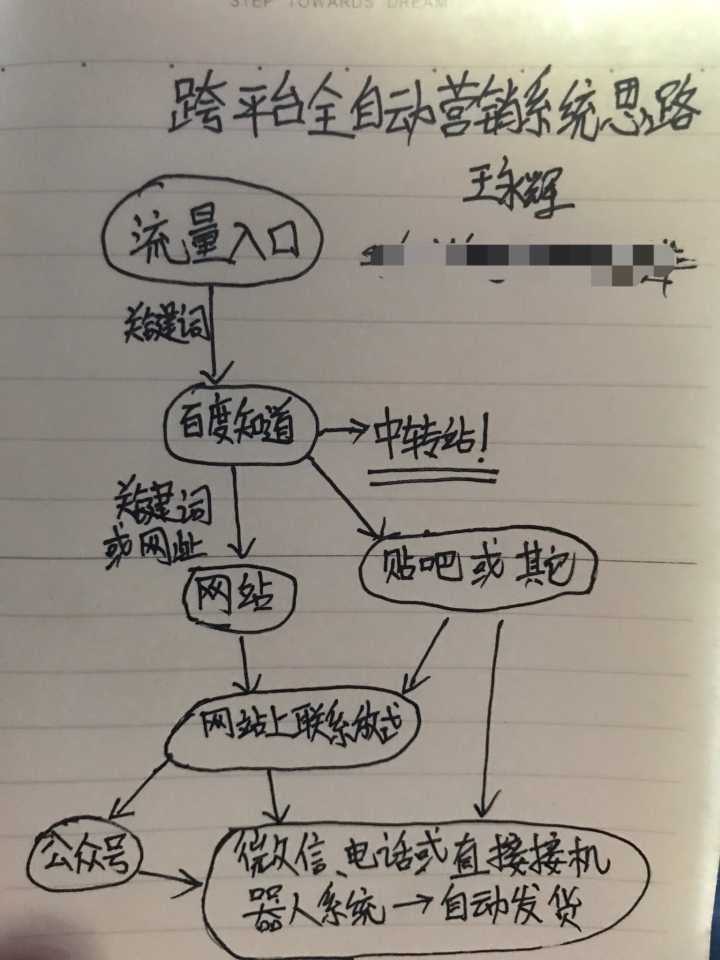 STEP TOWARDS DREAM
跨平台全自动营销系统思路
王永辉
流量入口
关键词
百度知道
中转站!
关键词
或网址
贴吧或其它
网站
网站上联系方式
公众号
微信、电话或直接接机
器人系统→自动发货